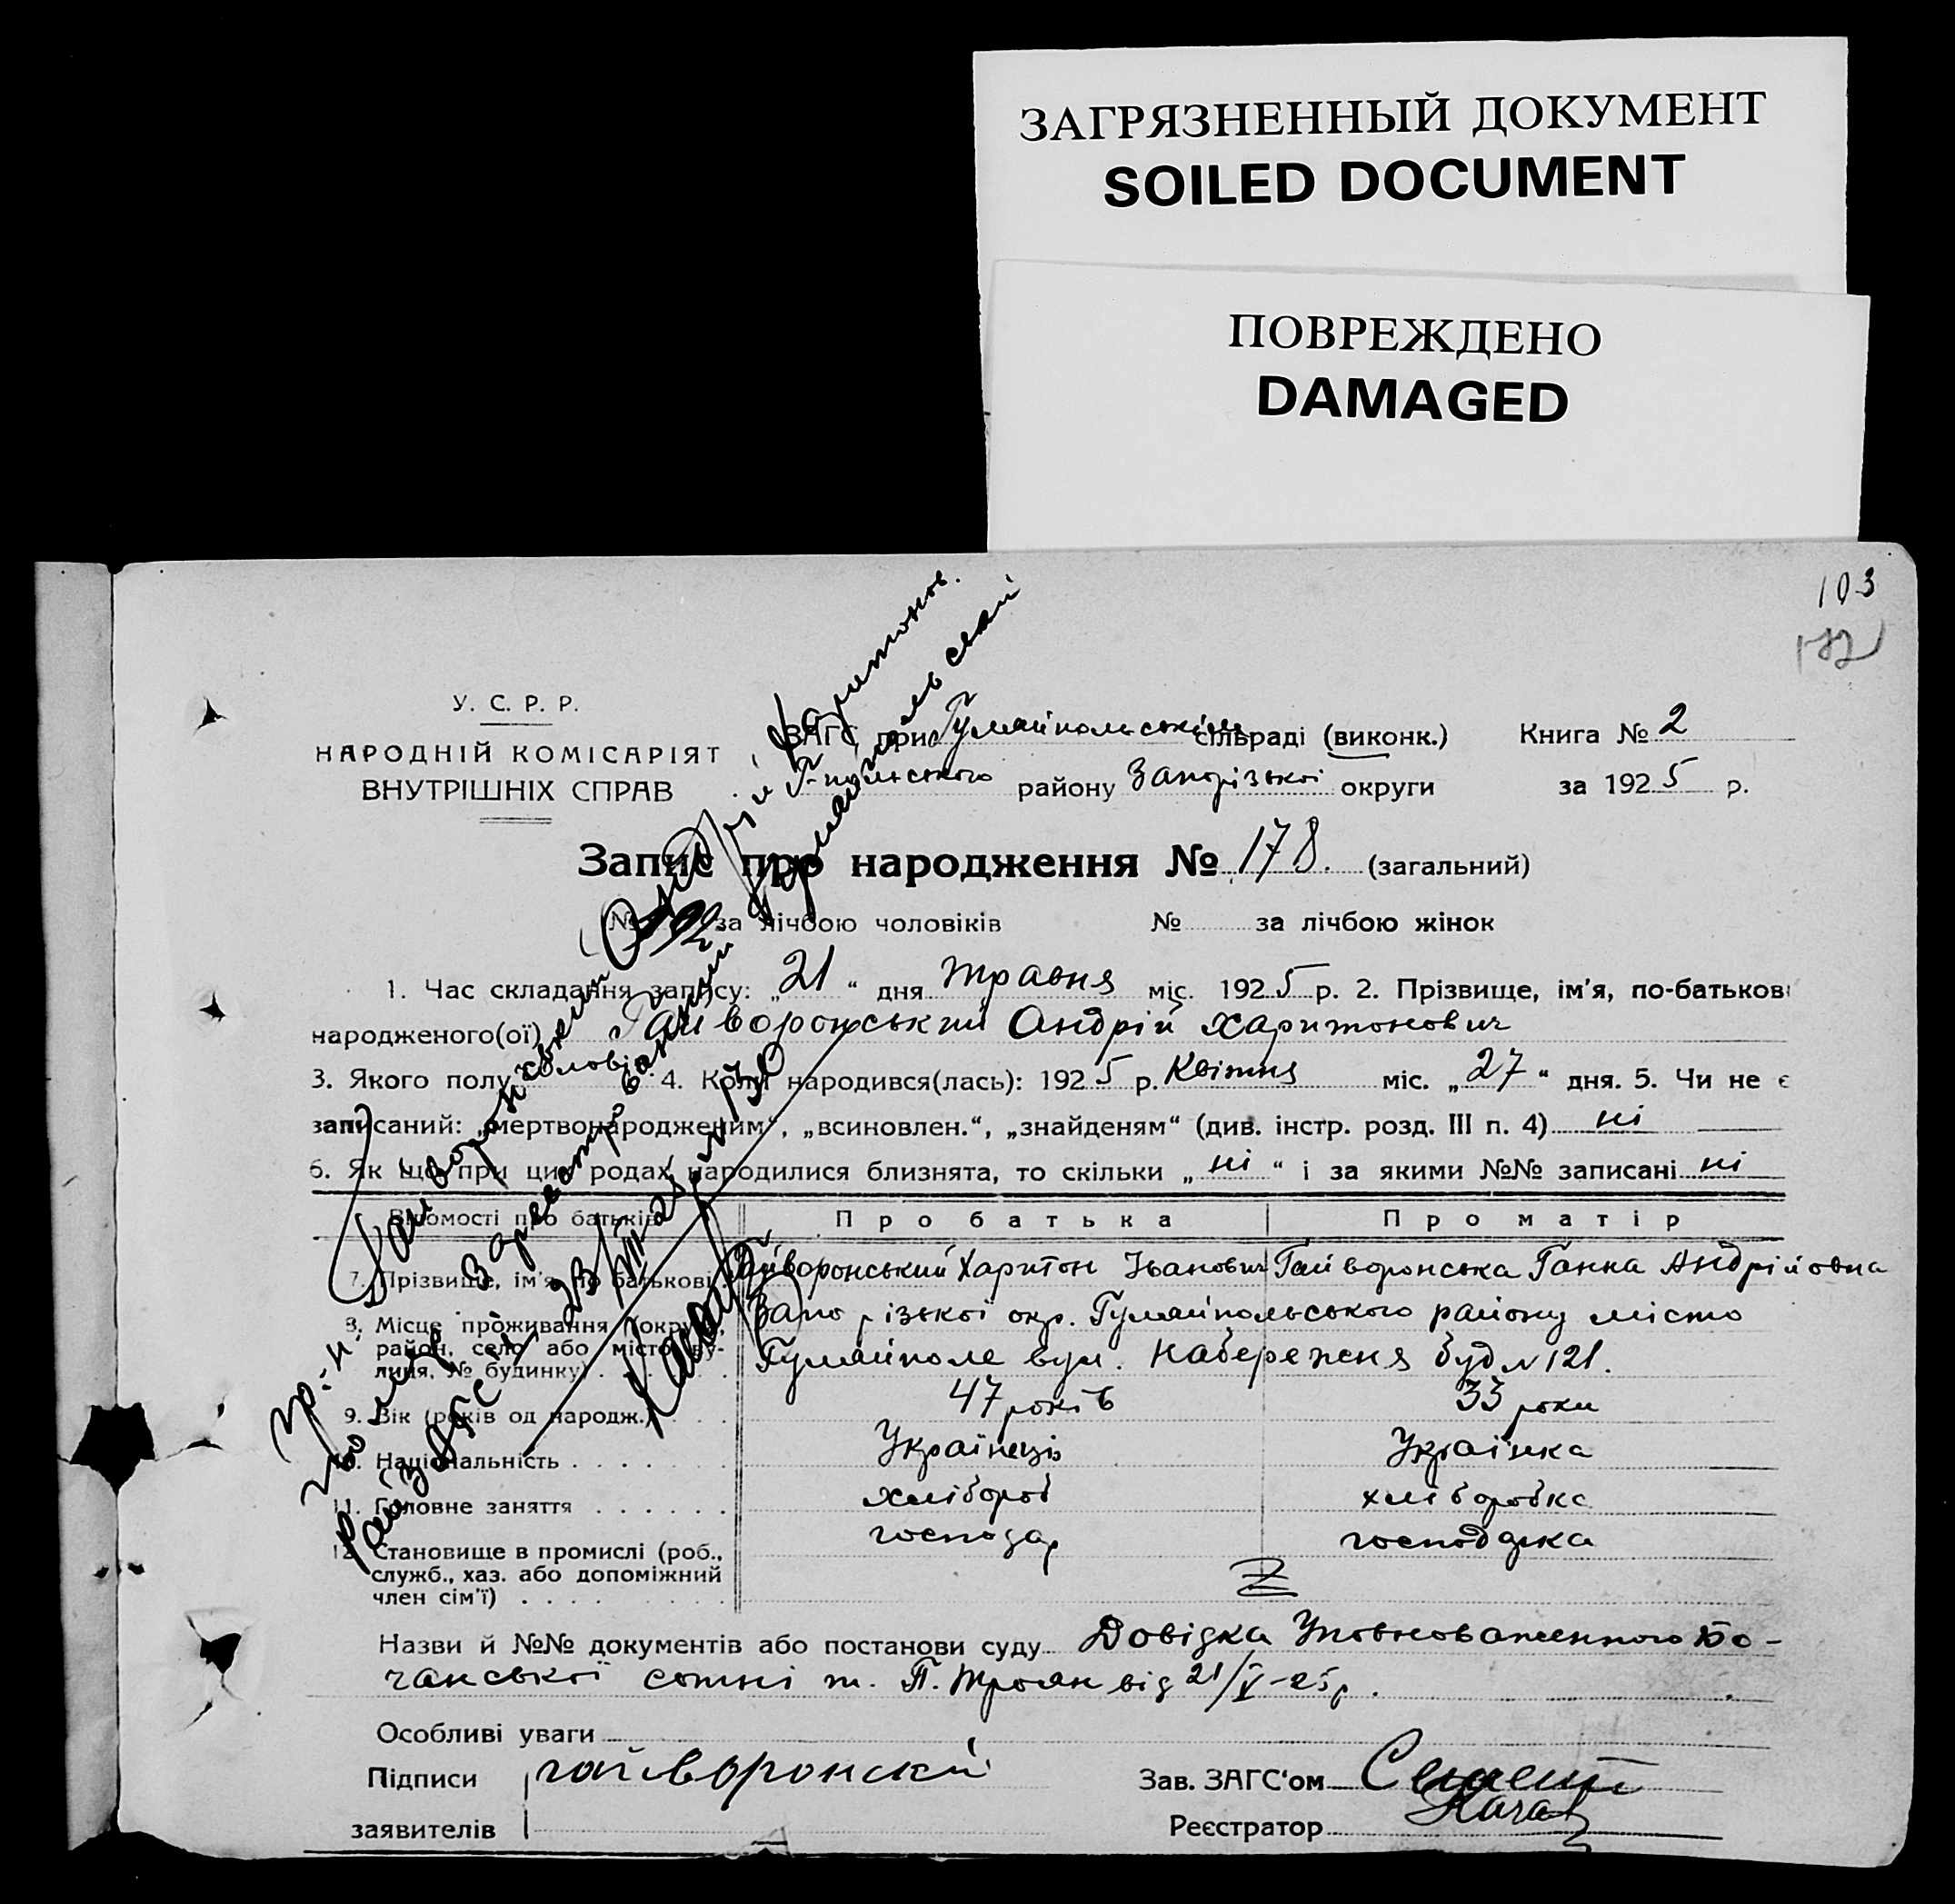 ЗАГРЯЗНЕННЫЙ ДОКУМЕНТ
SOILED DOCUMENT
ПОВРЕЖДЕНО
DAMAGED
103
У. С. Р. Р.
НАРОДНІЙ КОМІСАРІЯТ
ВНУТРІШНІХ СПРАВ
ЗАГС при Гуляйпольськім сільраді (виконк.) Книга № 2
Г-польського району Запорізької округи за 1925 р.
Запис про народження № 178. (загальний)
№ за лічбою чоловіків № за лічбою жінок
1. Час складання запису: „21“ дня травня міс. 1925 р. 2. Прізвище, ім'я, по-батькові
народженого(ої) Гайворонський Андрій Харитонович
3. Якого полу чоловіч. 4. Коли народився(лась): 1925 р. Квітня міс. „27“ дня. 5. Чи не є
записаний: „мертвонародженим“, „всиновлен.“, „знайденям“ (див. інстр. розд. III п. 4) ні
6. Як що при цих родах народилися близнята, то скільки „ні“ і за якими №№ записані ні
Відомості про батьків Про батька Про матір
7. Прізвище, ім'я, по батькові Гайворонський Харитон Іванович Гайворонська Ганна Андрійовна
8. Місце проживання (округа, Запорізької окр. Гуляйпольського району місто
район, село або місто, ву-
лиця, № будинку) Гуляйполе вул. Набережня буд №121.
9. Вік (років од народж.) 47 років 33 роки
10. Національність Українець Українка
11. Головне заняття хлібороб хліборобка
12. Становище в промислі (роб., господар господарка
служб., хаз. або допоміжний
член сім'ї)
Назви й №№ документів або постанови суду Довідка Уповноваженного Бо-
чанської сотні т. П. Троян від 21/V-25р.
Особливі уваги
Підписи гайворонскій Зав. ЗАГС'ом
заявителів Реєстратор
Гр-н Гайворонський Андрій Харитонов.